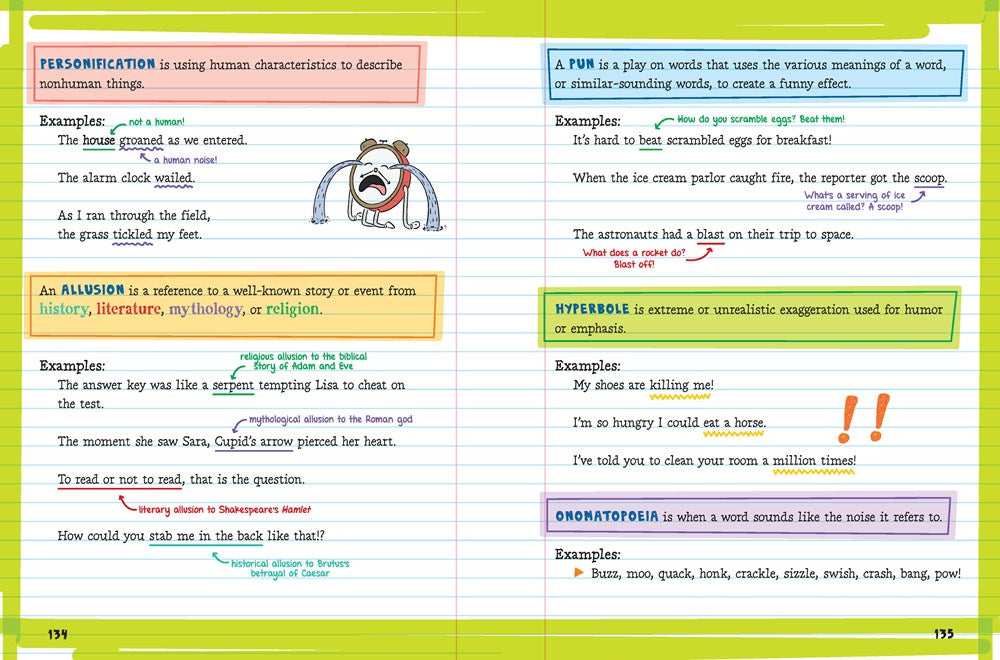 PERSONIFICATION is using human characteristics to describe
nonhuman things.
Examples:
not a human!
The house groaned as we entered.
a human noise!
The alarm clock wailed.
As I ran through the field,
the grass tickled my feet.
An ALLUSION is a reference to a well-known story or event from
history, literature, mythology, or religion.
Examples:
religious allusion to the biblical
story of Adam and Eve
The answer key was like a serpent tempting Lisa to cheat on
the test.
mythological allusion to the Roman god
The moment she saw Sara, Cupid's arrow pierced her heart.
To read or not to read, that is the question.
literary allusion to Shakespeare's Hamlet
How could you stab me in the back like that!?
historical allusion to Brutus's
betrayal of Caesar
134
A PUN is a play on words that uses the various meanings of a word,
or similar-sounding words, to create a funny effect.
Examples:
How do you scramble eggs? Beat them!
It's hard to beat scrambled eggs for breakfast!
When the ice cream parlor caught fire, the reporter got the scoop.
What's a serving of ice
cream called? A scoop!
The astronauts had a blast on their trip to space.
What does a rocket do?
Blast off!
HYPERBOLE is extreme or unrealistic exaggeration used for humor
or emphasis.
Examples:
My shoes are killing me!
I'm so hungry I could eat a horse.
I've told you to clean your room a million times!
!!
ONONATOPOEIA is when a word sounds like the noise it refers to.
Examples:
Buzz, moo, quack, honk, crackle, sizzle, swish, crash, bang, pow!
135